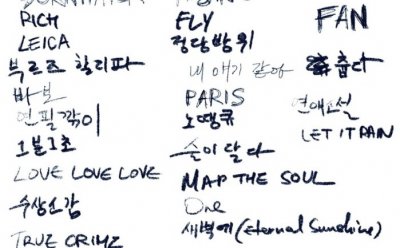 RICH
LEICA
부르즈 할리파
바보
연필깎이
1분1초
LOVE LOVE LOVE
수상소감
TRUE CRIME
FLY
정당방위
내 얘기 같아
PARIS
노땡큐
술이 달다
MAP THE SOUL
One
새벽에 (Eternal Sunshine)
FAN
춥다
연애소설
LET IT RAIN